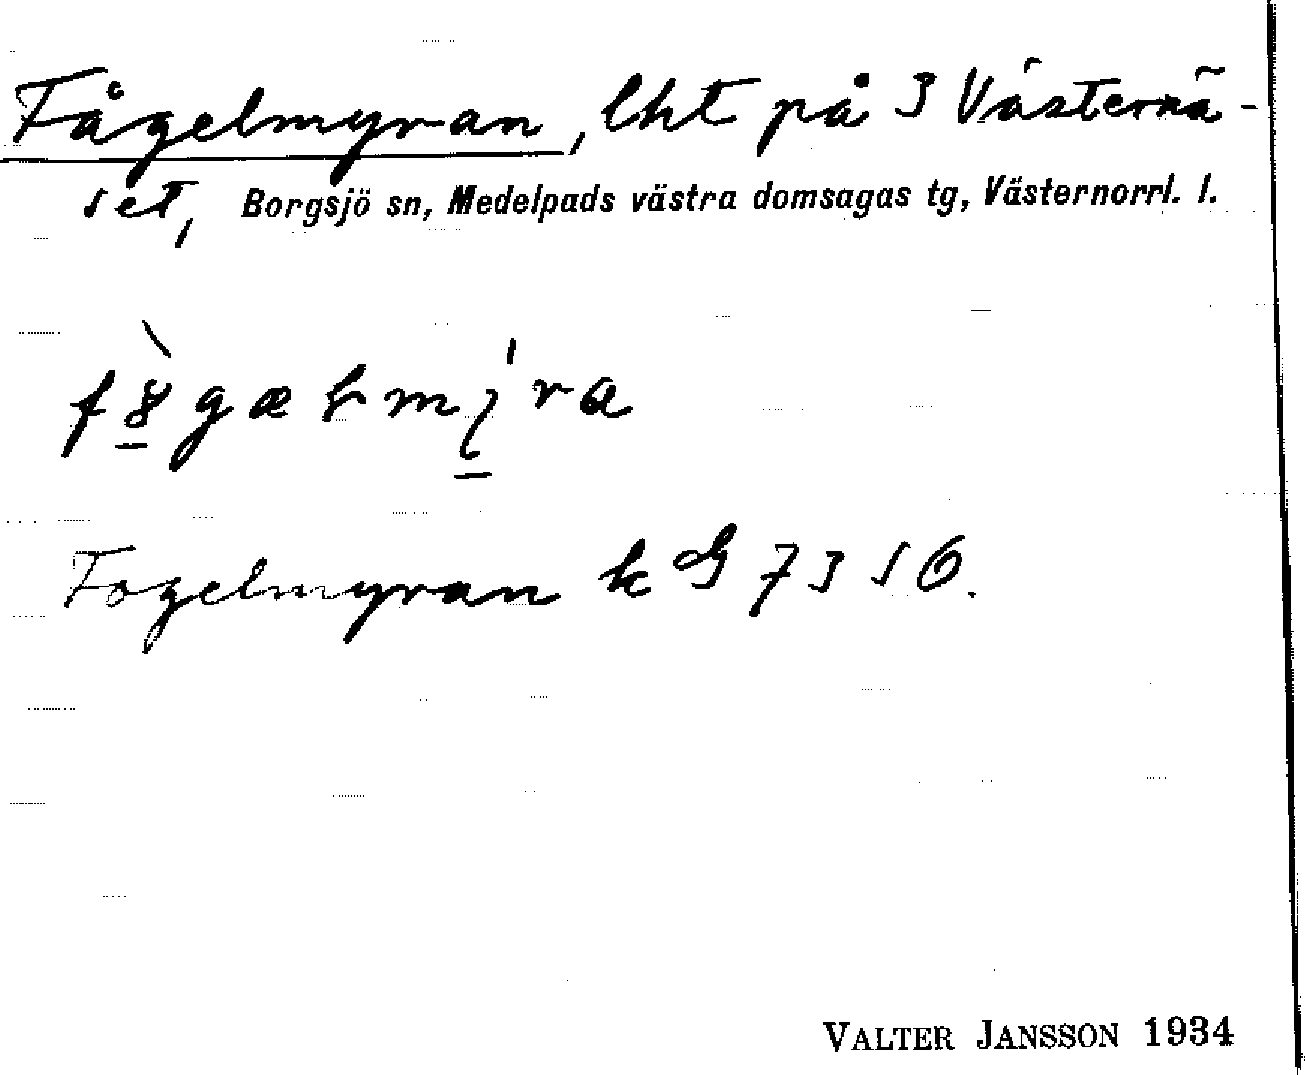 Fågelmyran, lht på 3 Västernä-
set, Borgsjö sn, Medelpads västra domsagas tg, Västernorrl. l.
Fogelmyran k G 7356.
VALTER JANSSON 1934